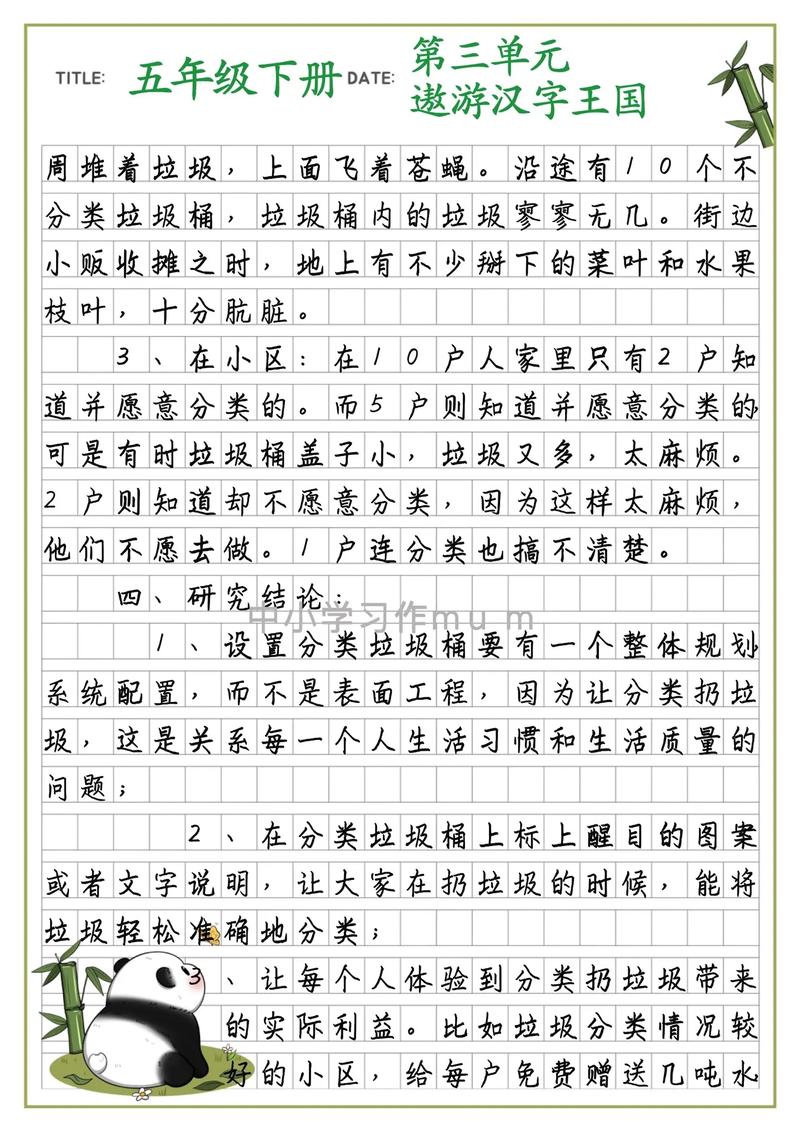 TITLE: 五年级下册 DATE: 第三单元
遨游汉字王国
周堆着垃圾，上面飞着苍蝇。沿途有10个不
分类垃圾桶，垃圾桶内的垃圾寥寥无几。街边
小贩收摊之时，地上有不少掰下的菜叶和水果
枝叶，十分肮脏。
3、在小区：在10户人家里只有2户知
道并愿意分类的。而5户则知道并愿意分类的
可是有时垃圾桶盖子小，垃圾又多，太麻烦。
2户则知道却不愿意分类，因为这样太麻烦，
他们不愿去做。1户连分类也搞不清楚。
四、研究结论：
中小学习作mum
1、设置分类垃圾桶要有一个整体规划
系统配置，而不是表面工程，因为让分类扔垃
圾，这是关系每一个人生活习惯和生活质量的
问题；
2、在分类垃圾桶上标上醒目的图案
或者文字说明，让大家在扔垃圾的时候，能将
垃圾轻松准确地分类；
3、让每个人体验到分类扔垃圾带来
的实际利益。比如垃圾分类情况较
好的小区，给每户免费赠送几吨水